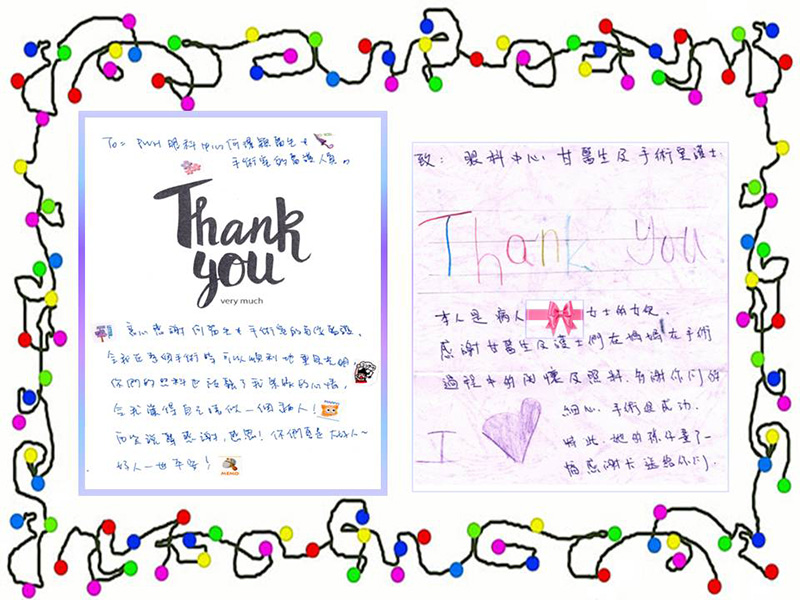 To: PWH 眼科中心何醫生 &
手術室的醫護人員。
Thank
you
very much
衷心感謝何醫生 & 手術室的每位醫護,
令我在手術時可以順利地重見光明
你們的照料也了我的心情,
令我覺得自己唔似一個病人!
再次說聲感謝,感恩!你們真是大好人~
好人一世平安!
致: 眼科中心 甘醫生及手術室護士.
Thank you
本人是病人 女士的女兒.
感謝甘醫生及護士們在媽媽在手術
過程中的關懷及照料.多謝你們的
細心.手術很成功.
特此,她的孫仔畫了一
幅感謝卡送給你們.
I